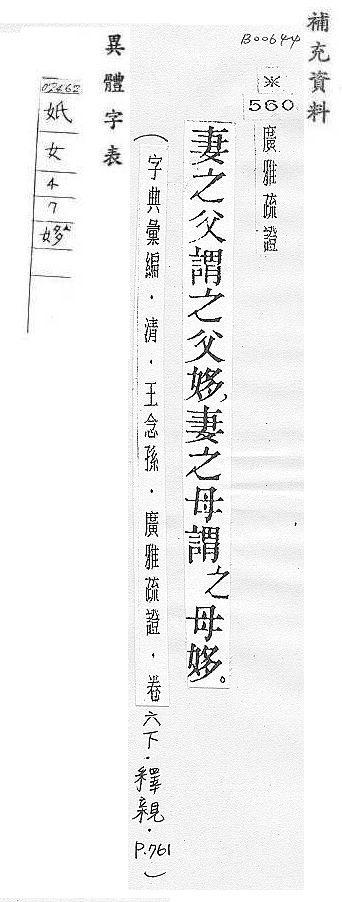 補充資料
B00644
※
560
廣雅疏證
妻之父謂之父姼,妻之母謂之母姼。
(字典彙編.清.王念孫.廣雅疏證.卷六下.釋親.P.761)
異體字表
02462
女
4
7
姼